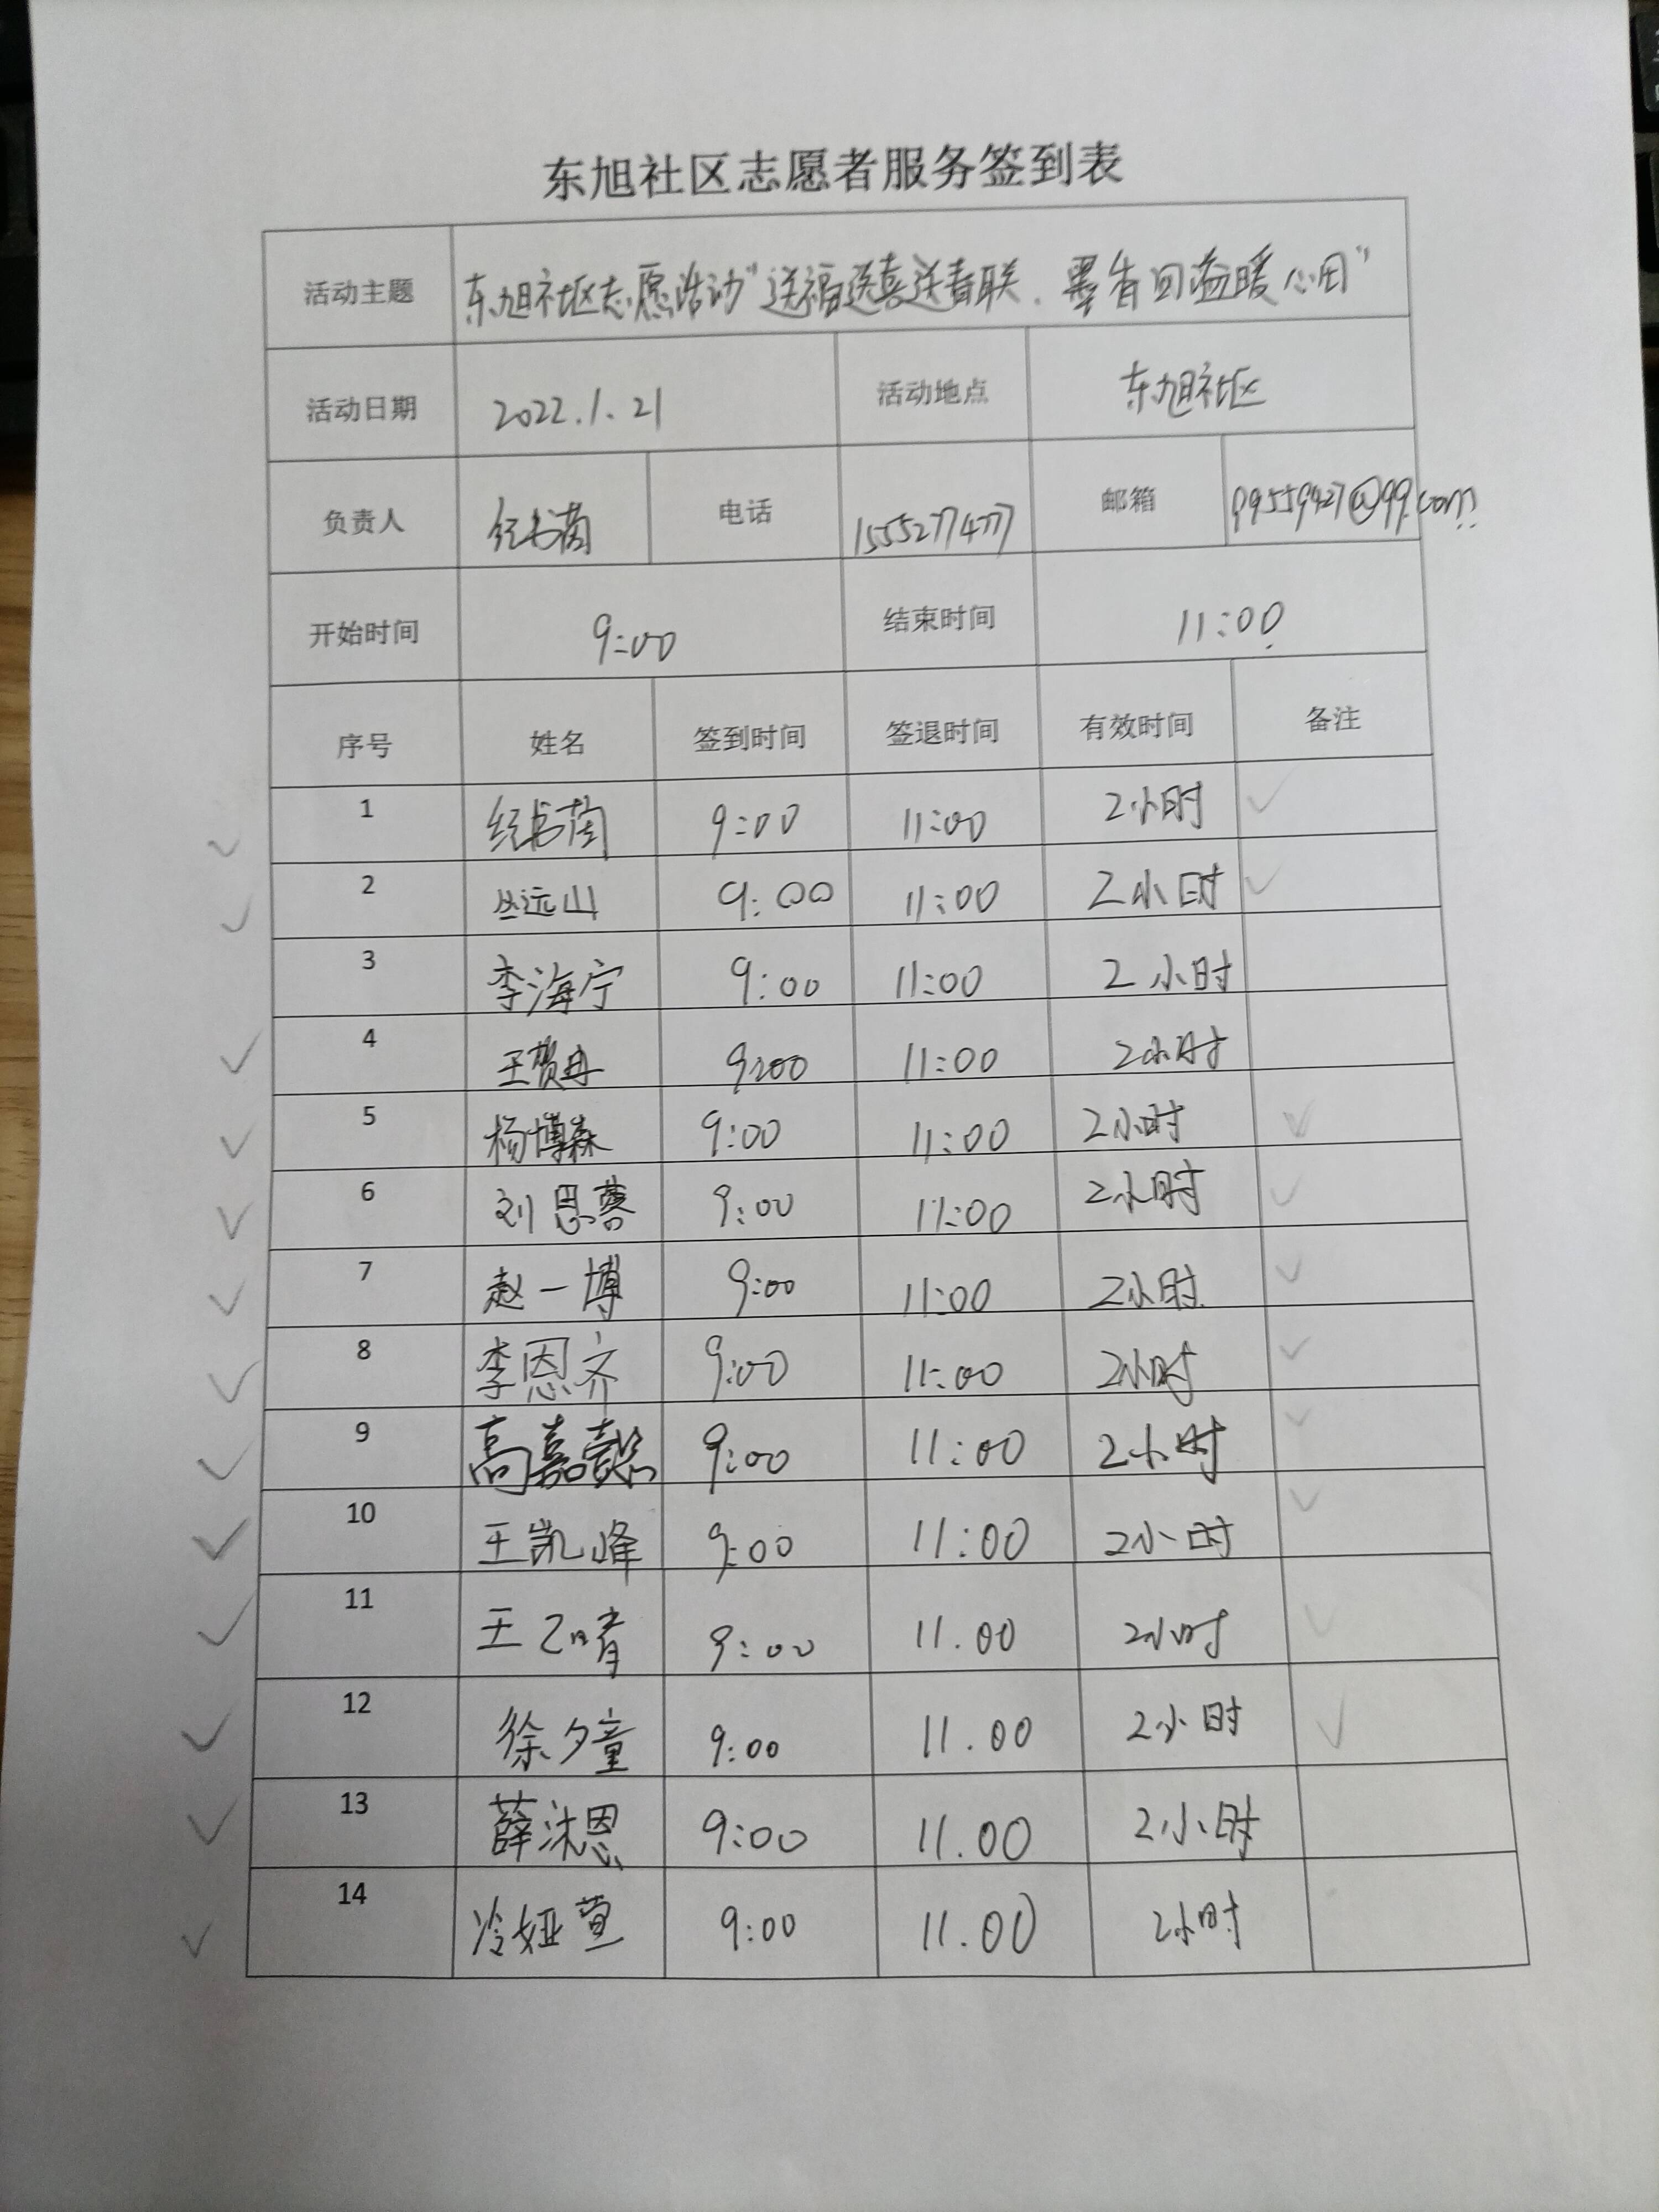 东旭社区志愿者服务签到表
活动主题 东旭社区志愿活动"送福送喜送春联
暖心田"
活动日期 2022.1.21 活动地点 东旭社区
负责人 电话 邮箱
开始时间 9:00 结束时间 11:00
序号 姓名 签到时间 签退时间 有效时间 备注
1 9:00 11:00 2小时 ✓
2 丛远山 9:00 11:00 2小时 ✓
3 李海宁 9:00 11:00 2小时
4 王贺冉 9:00 11:00 2小时
5 杨博森 9:00 11:00 2小时 ✓
6 刘恩蓉 9:00 11:00 2小时 ✓
7 赵一博 9:00 11:00 2小时 ✓
8 李恩齐 9:00 11:00 2小时 ✓
9 高嘉懿 9:00 11:00 2小时 ✓
10 王凯峰 9:00 11:00 2小时 ✓
11 王乙晴 9:00 11.00 2小时 ✓
12 徐夕童 9:00 11.00 2小时 ✓
13 薛沐恩 9:00 11.00 2小时
14 冷娅萱 9:00 11.00 2小时